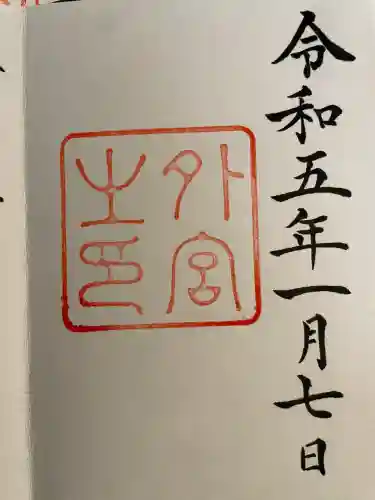 令和五年一月七日
外宮
之印